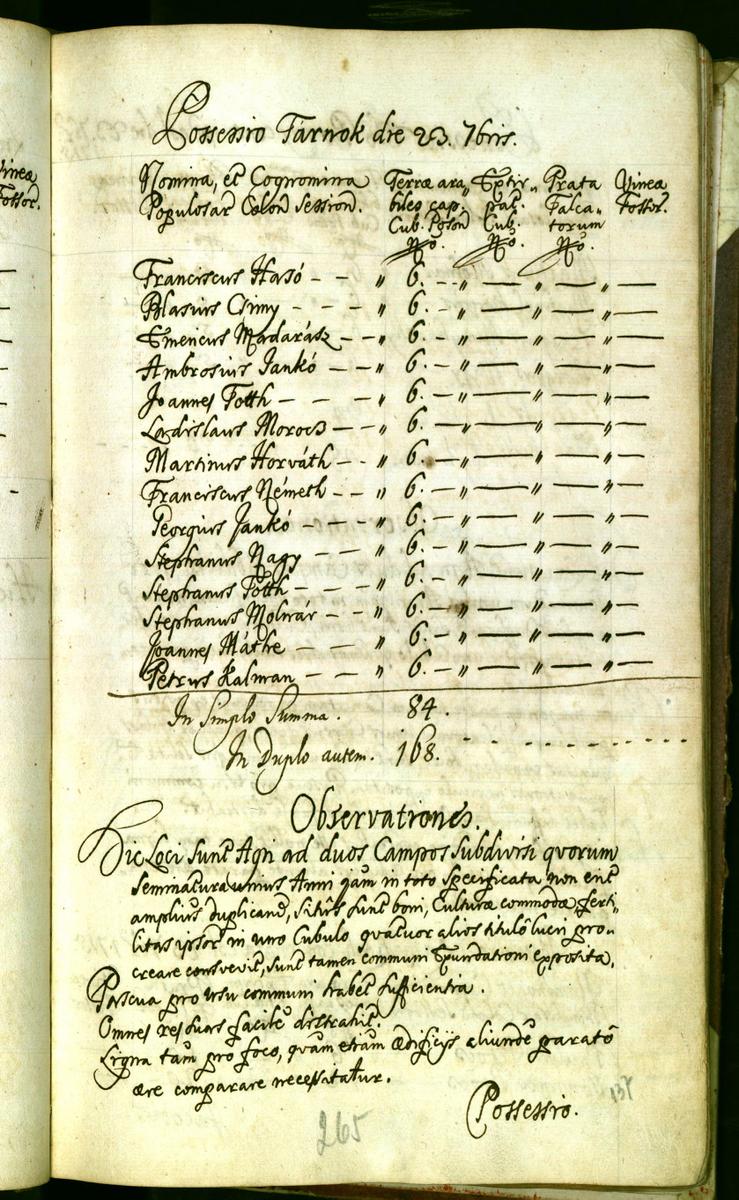 Vinea
Fossor.
Possessio Tarnok die 23. 7bris.
Nomina, et Cognomina Terræ ara„ Extir„ Prata Vinea
Populosar Colon Session. biles cap. pat. Falca„ Fossor.
Cub. Poson Cub. torum
No. No. No.
Franciscus Hasó – – „ 6. – „ — „ — „ —
Blasius Csimy – – – „ 6. – „ — „ — „ —
Emericus Madarász – – „ 6. – „ — „ — „ —
Ambrosius Jankó – – „ 6. – „ — „ — „ —
Joannes Totth – – – „ 6. – „ — „ — „ —
Ladislaus Morocz – – „ 6. – „ — „ — „ —
Martinus Horváth – – „ 6. – „ — „ — „ —
Franciscus Németh – – „ 6. – „ — „ — „ —
Georgius Jankó – – – „ 6. – „ — „ — „ —
Stephanus Nagy – – „ 6. – „ — „ — „ —
Stephanus Totth – – „ 6. – „ — „ — „ —
Stephanus Molnár – – „ 6. – „ — „ — „ —
Joannes Máthe – – „ 6. – „ — „ — „ —
Petrus Kalman – – „ 6. – „ — „ — „ —
In Simplo Summa. 84.
In Duplo autem. 168.
Observationes.
Hic Loci sunt Agri ad duos Campos subdivisi quorum
Seminatura unius Anni qam in toto specificata non erit
amplius duplicand, sitûs sunt boni, Culturæ commodæ, ferti„
litas ipsor in uno Cubulo quatuor alios titulô lucri pro„
creare consvevit, sunt tamen communi Exundationi exposita,
Pascua pro usu communi habet sufficientia.
Omnes res suas facilè distrahit.
Ligna tàm pro foco, quàm etiàm ædificijs aliundè paratô
ære comparare necessitatur.
Possessio.
137
265